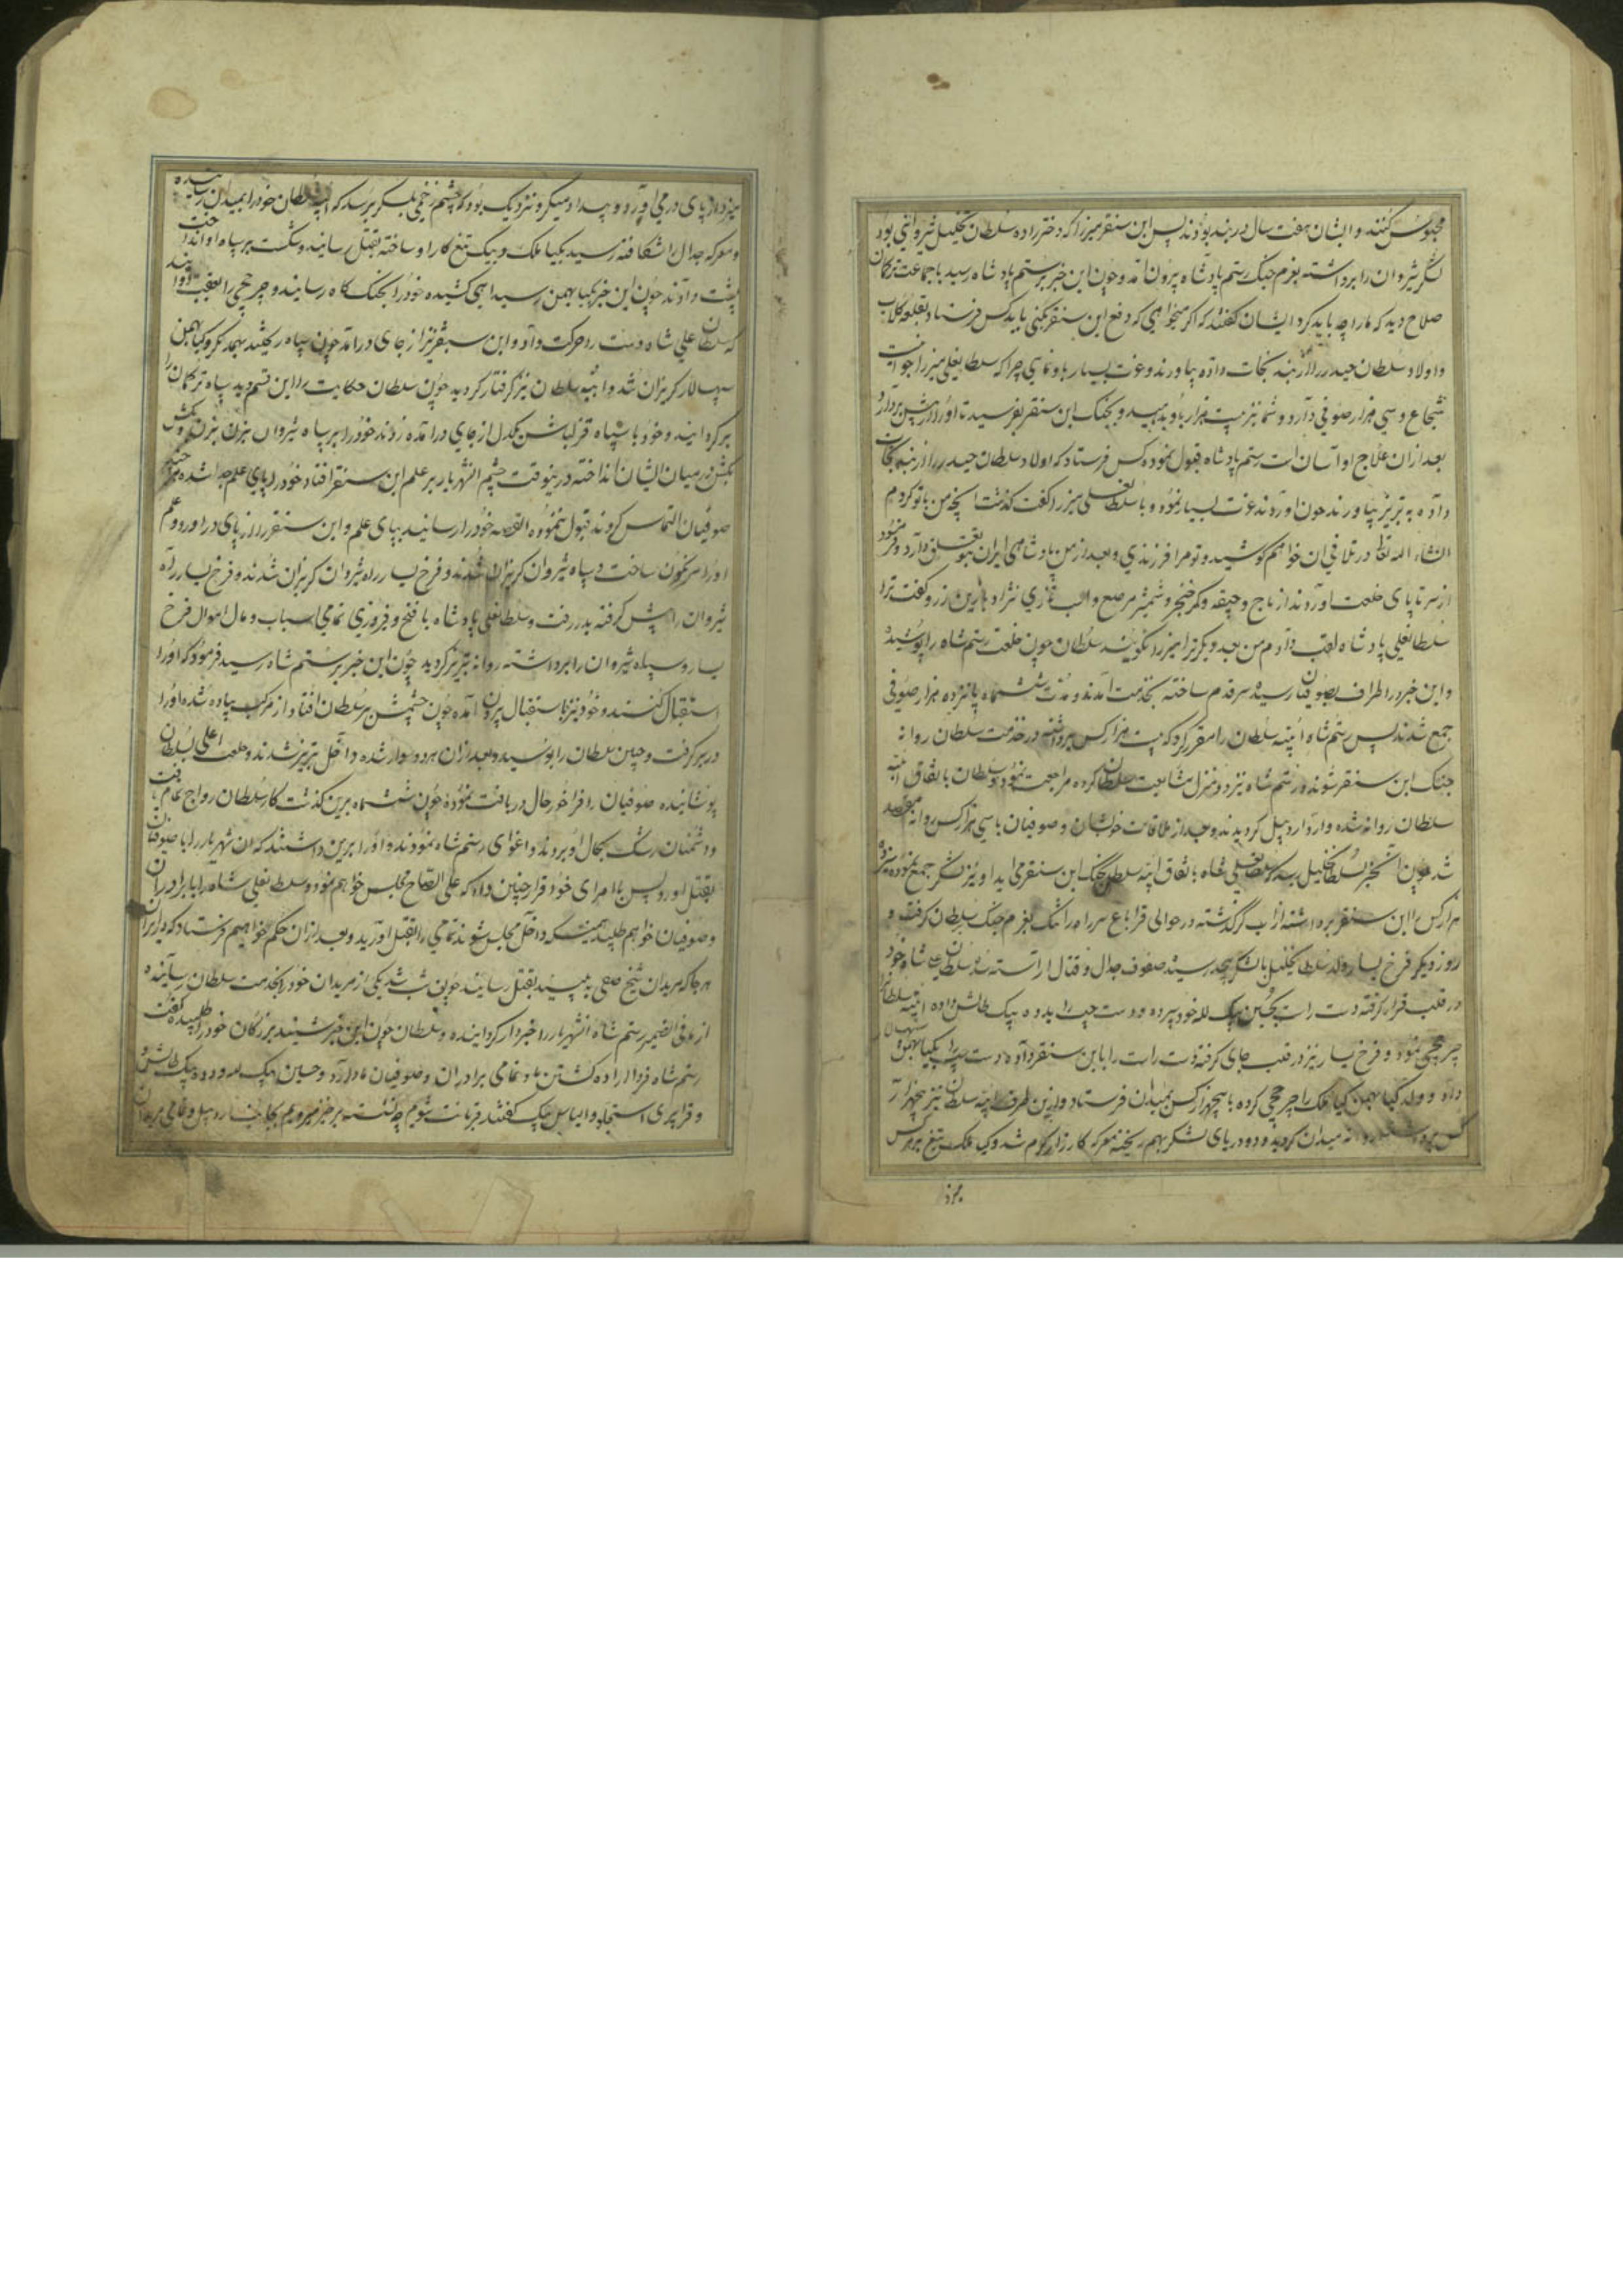 محبوس کنند و ایشان هفت سال در بند بودند پس ابن سنقر میرزا که دختر زاده سلطان خلیل شیروانی بود
لشکر شیروان را برداشته بعزم جنک رستم پادشاه بیرون آمد و چون این خبر برستم پادشاه رسید با جماعت ترکمان
صلاح دید که ما را چه باید کرد ایشان کفتند که اکر میخواهی که دفع ابن سنقر بکنی باید کس فرستاد بقلعه کلاب
و اولاد سلطان حیدر را از بند نجات داده بیاورند و عزت بسیار باو نمایی چرا که سلطانعلی میرزا جوانیست
شجاع و سی هزار صوفی دارد و شما نیز بیست هزار باو بدهید و بجنک ابن سنقر بفرستید تا او را از پیش بردارد
بعد از آن علاج او آسان است رستم پادشاه قبول نموده کس فرستاد که اولاد سلطان حیدر را از بند نجات
داده به تبریز بیاورند چون آوردند عزت بسیار نموده و با سلطانعلی میرزا کفت کذشت آنچه من با تو کردم
انشاء الله تعالی در تلافی آن خواهم کوشید و تو مرا فرزندی و بعد از من پادشاهی ایران بتو تعلق دارد و فرمود
از سر تا پای خلعت آوردند از تاج و جیقه و کمر خنجر و شمشیر مرصع و اسب تازی نژاد با زین زر و کفت ترا
سلطانعلی پادشاه لقب دادم من بعد دیکر ترا میرزا نکویند سلطان چون خلعت رستم شاه را پوشید
و این خبر در اطراف بصوفیان رسید سر قدم ساخته بخدمت آمدند و مدت ششماه پانزده هزار صوفی
جمع شدند پس رستم شاه ایبه سلطان را مقرر کرد که بیست هزار کس برداشته در خدمت سلطان روانه
جنک ابن سنقر شوند و رستم شاه نیز دو منزل مشایعت سلطان کرده مراجعت نمود و سلطان باتفاق ایبه
سلطان روانه شده وارد اردبیل کردیدند و بعد از ملاقات خویشان و صوفیان با سی هزار کس روانه مقصد
شد چون این خبر سلطان خلیل رسید که سلطانعلی شاه باتفاق ایبه سلطان بجنک ابن سنقر می آید او نیز لشکر جمع نموده
هزار کس با ابن سنقر برداشته از آب کر کذشته در حوالی قراباغ سر راه را تنک بعزم جنک سلطان کرفت و
روز دیکر فرخ یسار ولد سلطان خلیل با لشکر بیحد رسید صفوف جدال و قتال آراسته شد سلطان علی شاه خود
در قلب قرار کرفته دست راست بحسین بیک لله خود سپرده و دست چپ را بدده بیک طالش داده ایبه سلطان
چرخچی نمود و فرخ یسار نیز در قلب جای کرفته دست راست را با ابن سنقر داده دست چپ را بکیا بهمن
داد و ولد کیا بهمن کیا ملک را چرخچی کرده با پنجهزار کس بمیدان فرستاد و از این طرف ایبه سلطان نیز پنجهزار
کس برداشته روانه میدان کردید و دو دریای لشکر بهم ریخته معرکه کارزار کرم شد و کیا ملک تیغ بر هر کس
میزد
میزد از پای در می آورد و بیداد میکرد نزدیک بود که چشم زخمی بلشکر برسد که ایبه سلطان خود را بمیدان رسانیده
و معرکه جدال را شکافته رسید بکیا ملک و بیک تیغ کار او ساخته بقتل رسانید و شکست بر سپاه او انداخت
پشت دادند چون این خبر بکیا بهمن رسید آهی کشیده خود را بجنک کاه رسانید و چرخچی را بعقب دوانید
که سلطان علی شاه دست را حرکت داد و ابن سنقر نیز از جای درآمد چون سپاه ریختند بهمدیکر و کیا بهمن
سپهسالار کریزان شد و ایبه سلطان نیز کرفتار کردید چون سلطان حکایت را باین قسم دید سپاه ترکمان را
برکردانید و خود با سپاه قزلباش یکدل از جای درآمده زدند خود را بر سپاه شیروان بزن بزن و بکش
بکش در میان ایشان انداخته در ینوقت چشم آنشهریار بر علم ابن سنقر افتاد خود را بپای علم
صوفیان التماس کردند قبول ننموده القصه خود را رسانید بپای علم و ابن سنقر را از پای درآورد و علم
او را سرنکون ساخت و سپاه شیروان کریزان شدند و فرخ یسار راه شیروان کریزان شدند و فرخ یسار راه
شیروان را پیش کرفته بدر رفت و سلطانعلی پادشاه با فتح و فیروزی تمامی اسباب و مال اموال فرخ
یسار و سپاه شیروان را برداشته روانه تبریز کردید چون این خبر برستم شاه رسید فرمود که او را
استقبال کنند و خود نیز باستقبال بیرون آمده چون چشمش بر سلطان افتاد از مرکب پیاده شده او را
در بر کرفت و جبین سلطان را بوسید و بعد از آن هر دو سوار شده داخل تبریز شدند و خلعت اعلی بسلطان
پوشانیده صوفیان را فراخور حال دریافت نموده چون ششماه برین کذشت کار سلطان رواج تمام یافت
و دشمنان رشک بحال او بردند و اغوای رستم شاه نمودند و او را برین داشتند که آن شهریار را با صوفیان
بقتل آورد پس با امرای خود قرار چنین داد که علی الصباح مجلس خواهم نمود و سلطانعلی شاه را با برادران
و صوفیان خواهم طلبید همینکه داخل مجلس شوند تمامی را بقتل آورید و بعد از آن حکم خواهیم فرستاد که در ایران
هر جا که مریدان شیخ صفی ببینید بقتل رسانید چون شب شد یکی از مریدان خود را بخدمت سلطان رسانیده
از ما فی الضمیر رستم شاه آنشهریار را خبردار کردانیده و سلطان چون این خبر شنید بزرکان خود را طلبیده کفت
رستم شاه فردا اراده کشتن ما و تمامی برادران و صوفیان ما دارد و حسین بیک لله و دده بیک طالش و
و قراپیری استجلو و الیاس بیک کفتند قربانت شویم چه نشسته برخیز میرویم بجانب اردبیل و تمامی مریدان